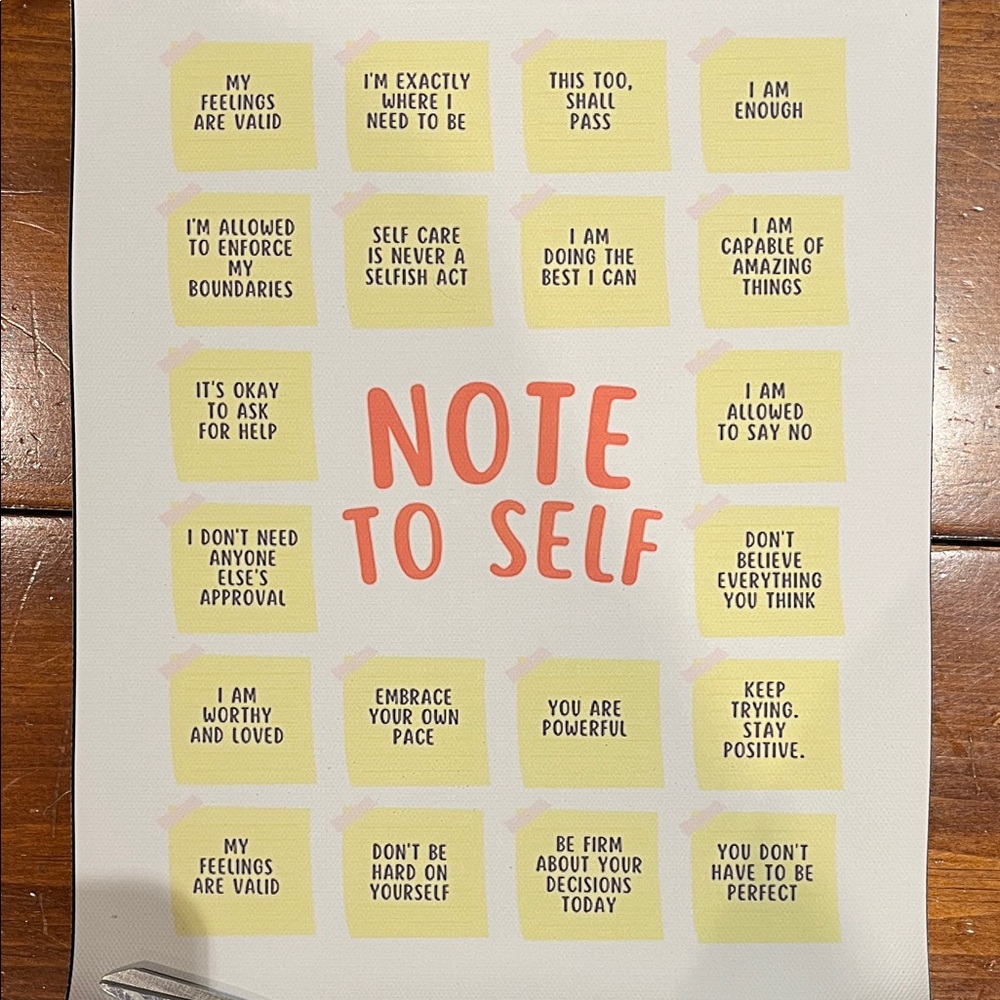 MY
FEELINGS
ARE VALID
I'M EXACTLY
WHERE I
NEED TO BE
THIS TOO,
SHALL
PASS
I AM
ENOUGH
I'M ALLOWED
TO ENFORCE
MY
BOUNDARIES
SELF CARE
IS NEVER A
SELFISH ACT
I AM
DOING THE
BEST I CAN
I AM
CAPABLE OF
AMAZING
THINGS
IT'S OKAY
TO ASK
FOR HELP
NOTE
TO SELF
I AM
ALLOWED
TO SAY NO
I DON'T NEED
ANYONE
ELSE'S
APPROVAL
DON'T
BELIEVE
EVERYTHING
YOU THINK
I AM
WORTHY
AND LOVED
EMBRACE
YOUR OWN
PACE
YOU ARE
POWERFUL
KEEP
TRYING.
STAY
POSITIVE.
MY
FEELINGS
ARE VALID
DON'T BE
HARD ON
YOURSELF
BE FIRM
ABOUT YOUR
DECISIONS
TODAY
YOU DON'T
HAVE TO BE
PERFECT